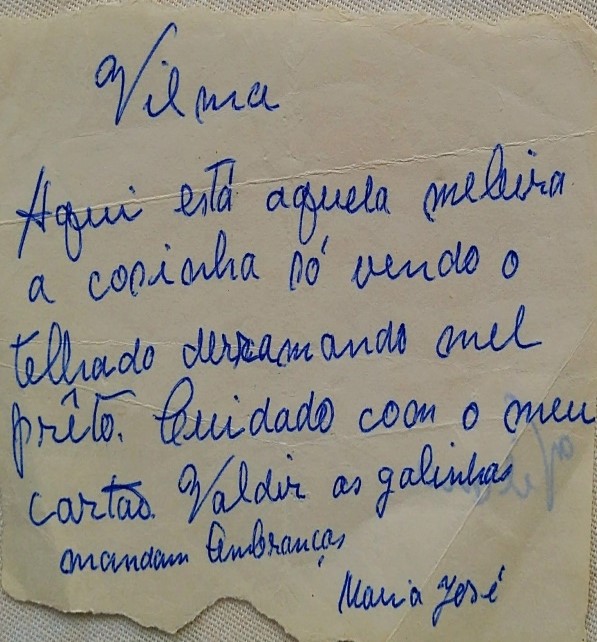 Vilma
Aqui está aquela meleira
a cosinha só vendo o
telhado derramando mel
prêto. Cuidado com o meu
cartão. Valdir as galinhas
mandam lembranças
Maria José